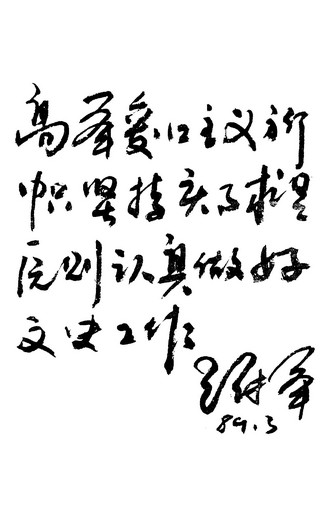 高举爱国主义旗
帜坚持实事求是
原则认真做好
文史工作
89.3